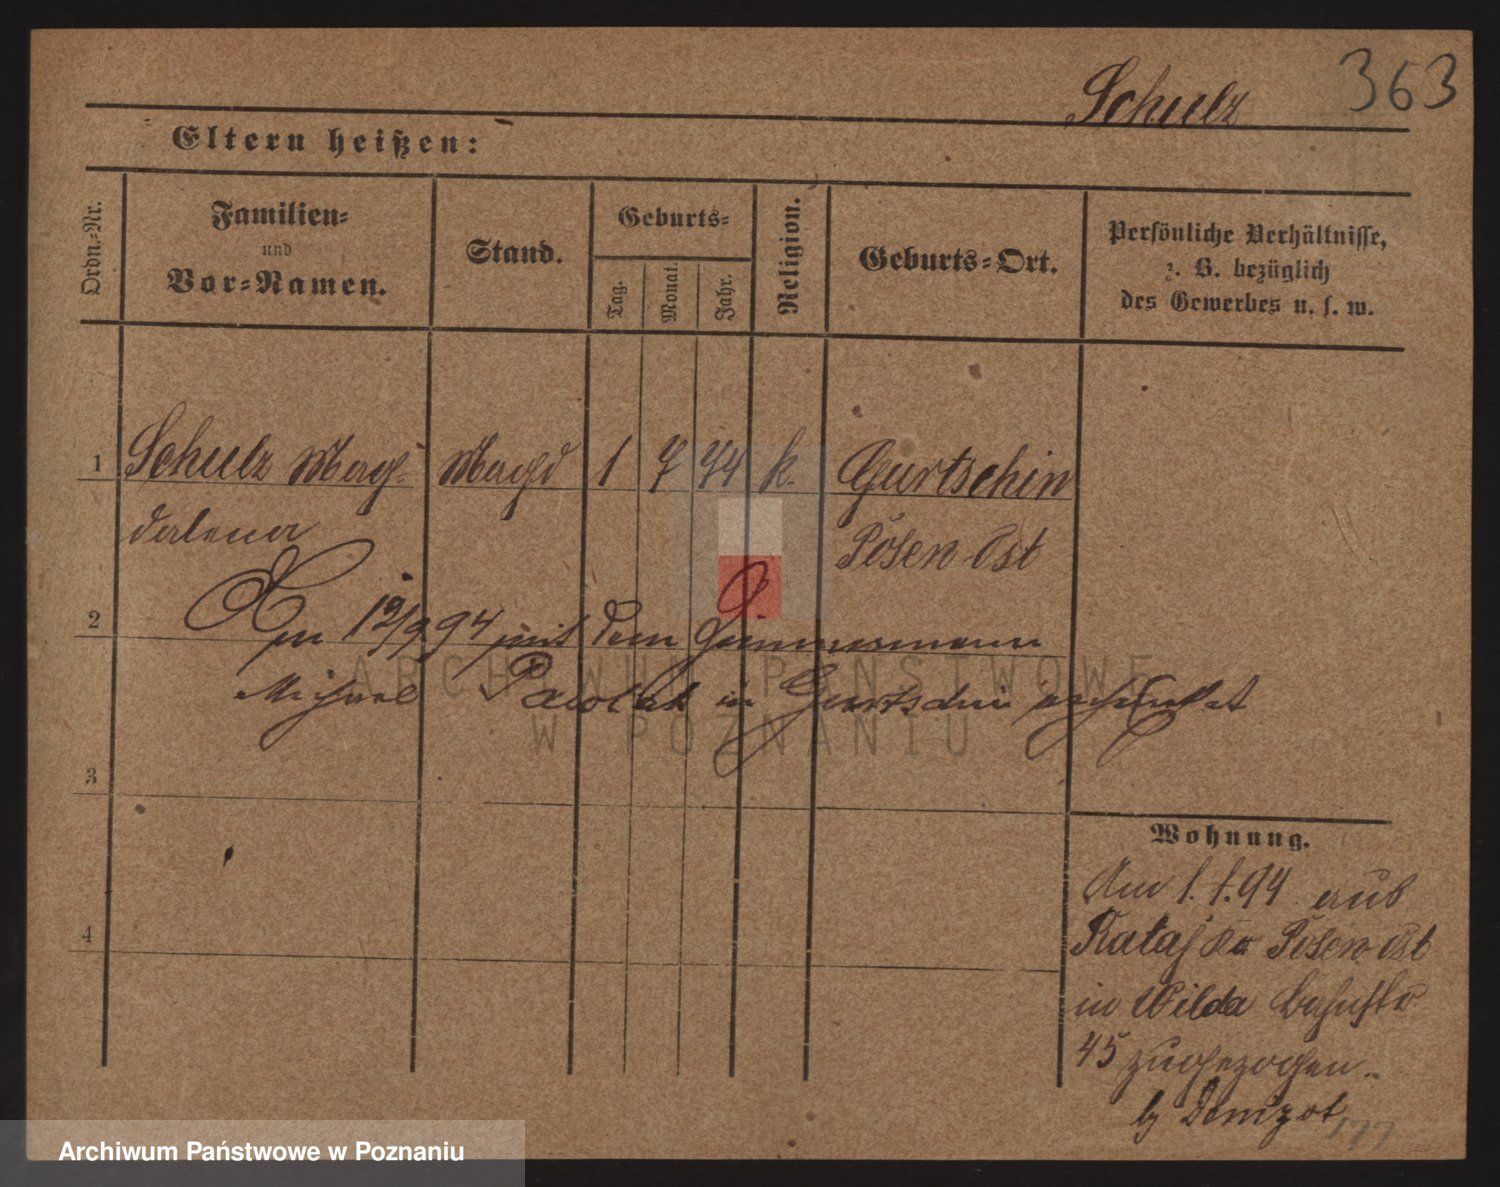 Schulz 363
Eltern heißen:
Ordn.-Nr.
Familien-
und
Vor-Namen.
Stand.
Geburts-
Tag.
Monat.
Jahr.
Religion.
Geburts-Ort.
Persönliche Verhältnisse,
z. B. bezüglich
des Gewerbes u. s. w.
1 Schulz Mag- Magd 1 7 74 k. Gurtschin
dalena Posen-Ost
2
Am 12/9 94 mit dem
Michael Pawlak in Gurtschin
ARCHIWUM PAŃSTWOWE
W POZNANIU
3
4
Wohnung.
Am 1.1.94 aus
Posen Ost
in Wilda Bahnstr
45 zugezogen.
b/
Archiwum Państwowe w Poznaniu